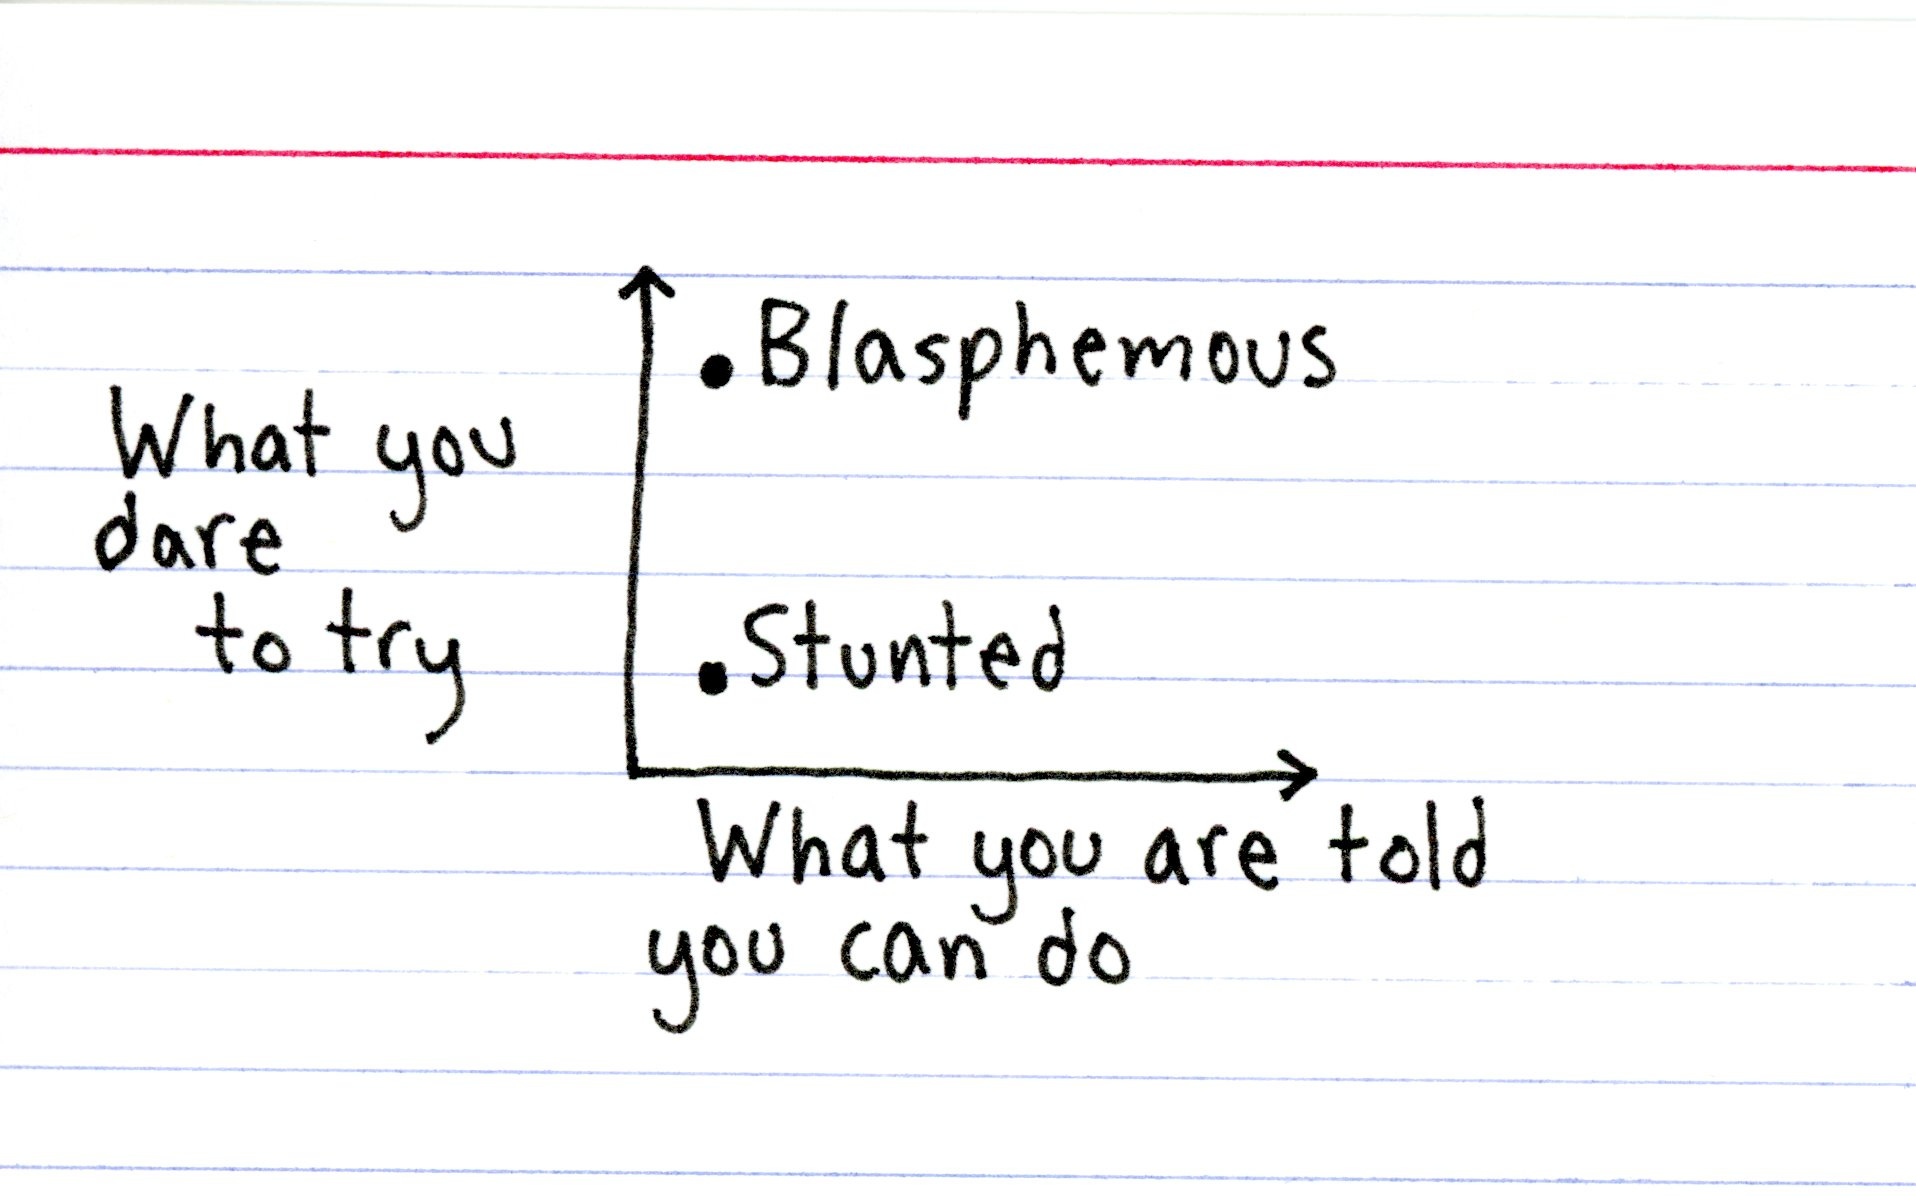 Blasphemous
What you
dare
to try
Stunted
What you are told
you can do